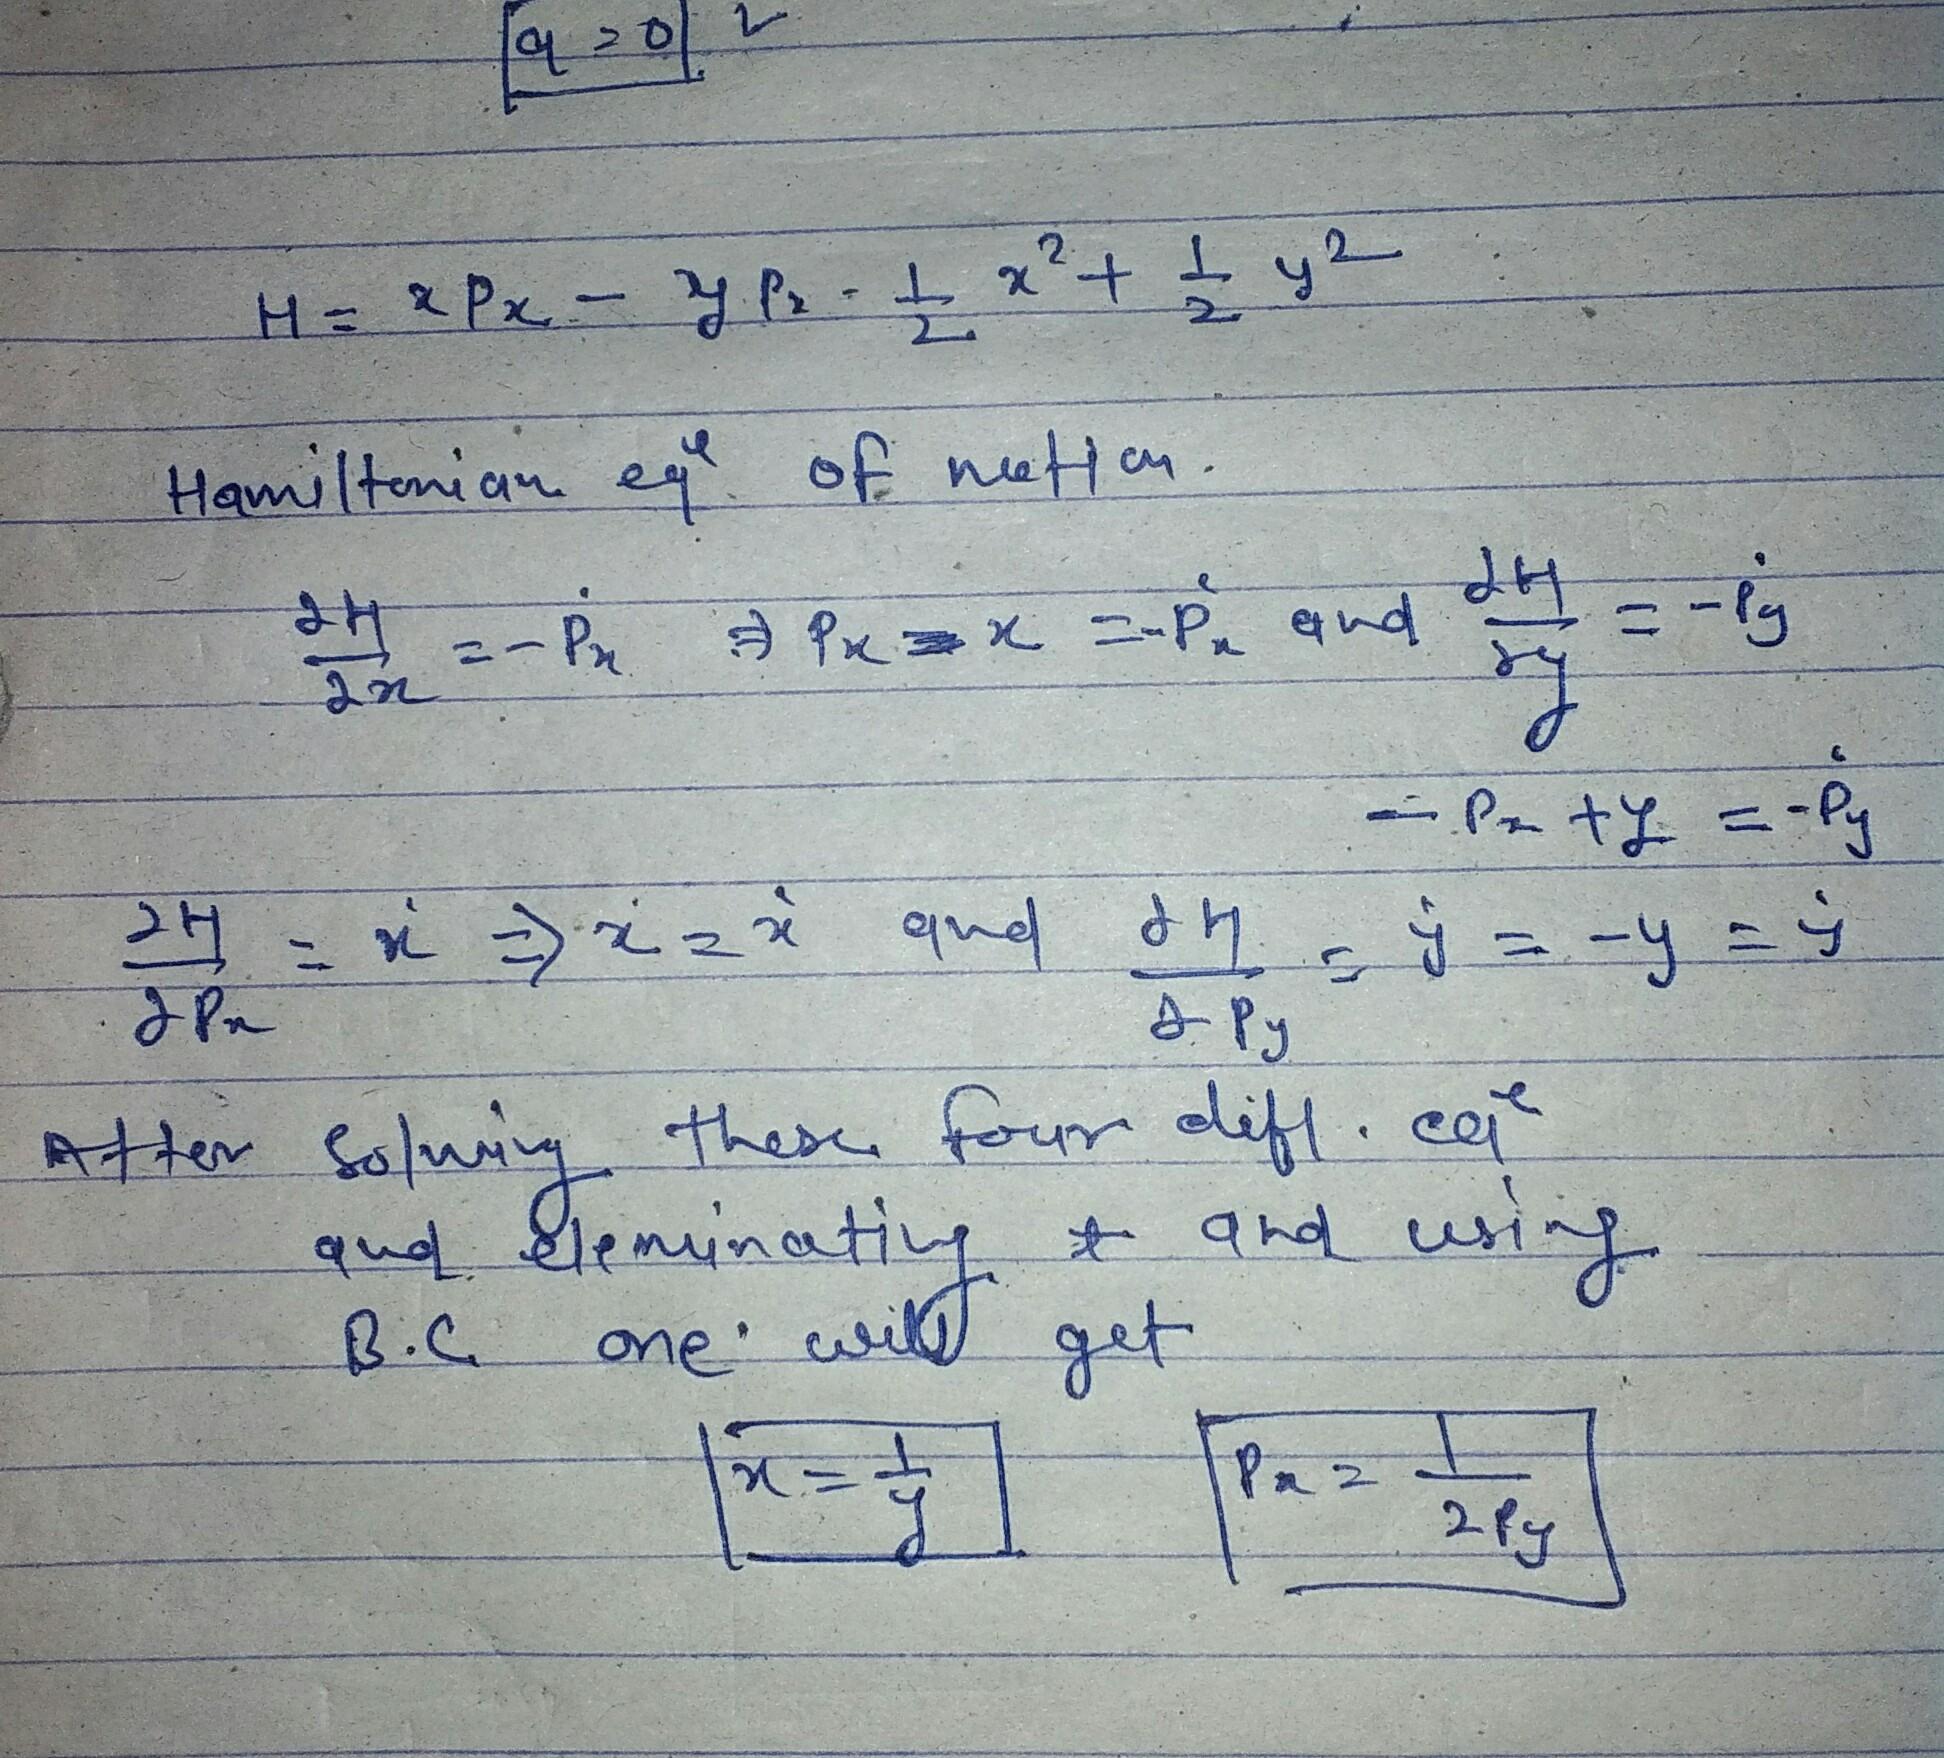 q = 0
H = x Px - y Px - 1/2 x² + 1/2 y²
Hamiltonian eqⁿ of motion.
∂H/∂x = - Ṗx ⇒ Px - x = - Ṗx and ∂H/∂y = - Ṗy
- Px + y = - Ṗy
∂H/∂Px = ẋ ⇒ x = ẋ and ∂H/∂Py = ẏ = - y = ẏ
After solving these four diff. eqⁿ
and eleminating t and using
B.C one will get
x = 1/y Px = 1/2Py